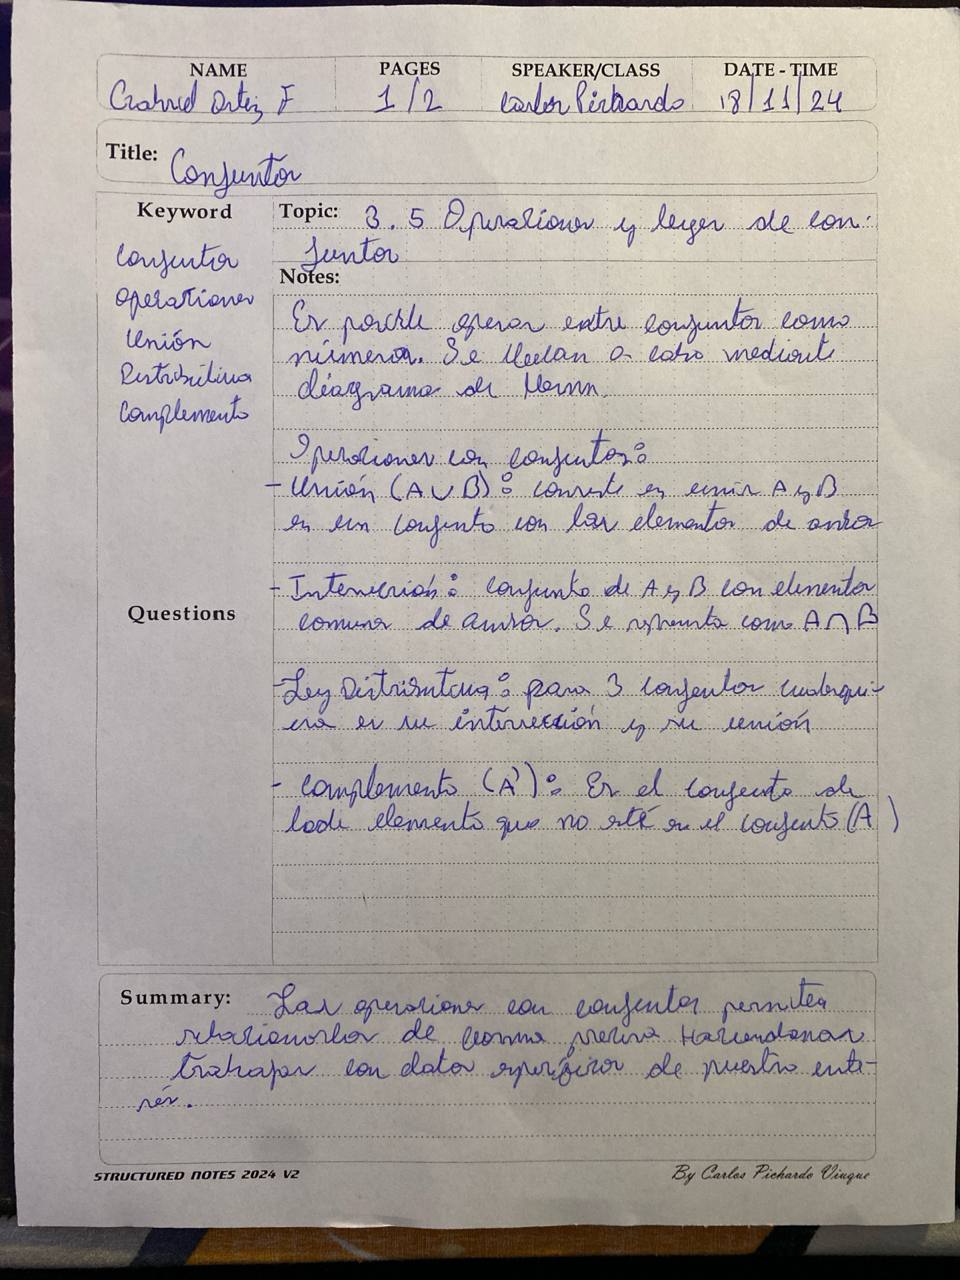 NAME PAGES SPEAKER/CLASS DATE - TIME
Gabriel Ortiz F 1/2 Carlos Pichardo 18/11/24
Title: Conjuntos
Keyword
Conjuntos
Operaciones
Unión
Distributiva
Complemento
Questions
Topic: 3.5 Operaciones y leyes de con-
juntos
Notes:
Es posible operar entre conjuntos como
números. Se llevan a cabo mediante
diagrama de Venn.
Operaciones con conjuntos:
- Unión (A∪B): consiste en unir A y B
en un conjunto con los elementos de ambos
- Intersección: conjunto de A y B con elementos
comunes de ambos. Se representa como A∩B
- Ley Distributiva: para 3 conjuntos cualesqui-
era es su intersección y su unión
- Complemento (A'): Es el conjunto de
todo elemento que no esté en el conjunto (A)
Summary: Las operaciones con conjuntos permiten
relacionarlos de forma precisa
trabajar con datos específicos de nuestro inte-
rés.
STRUCTURED NOTES 2024 V2
By Carlos Pichardo Viuque